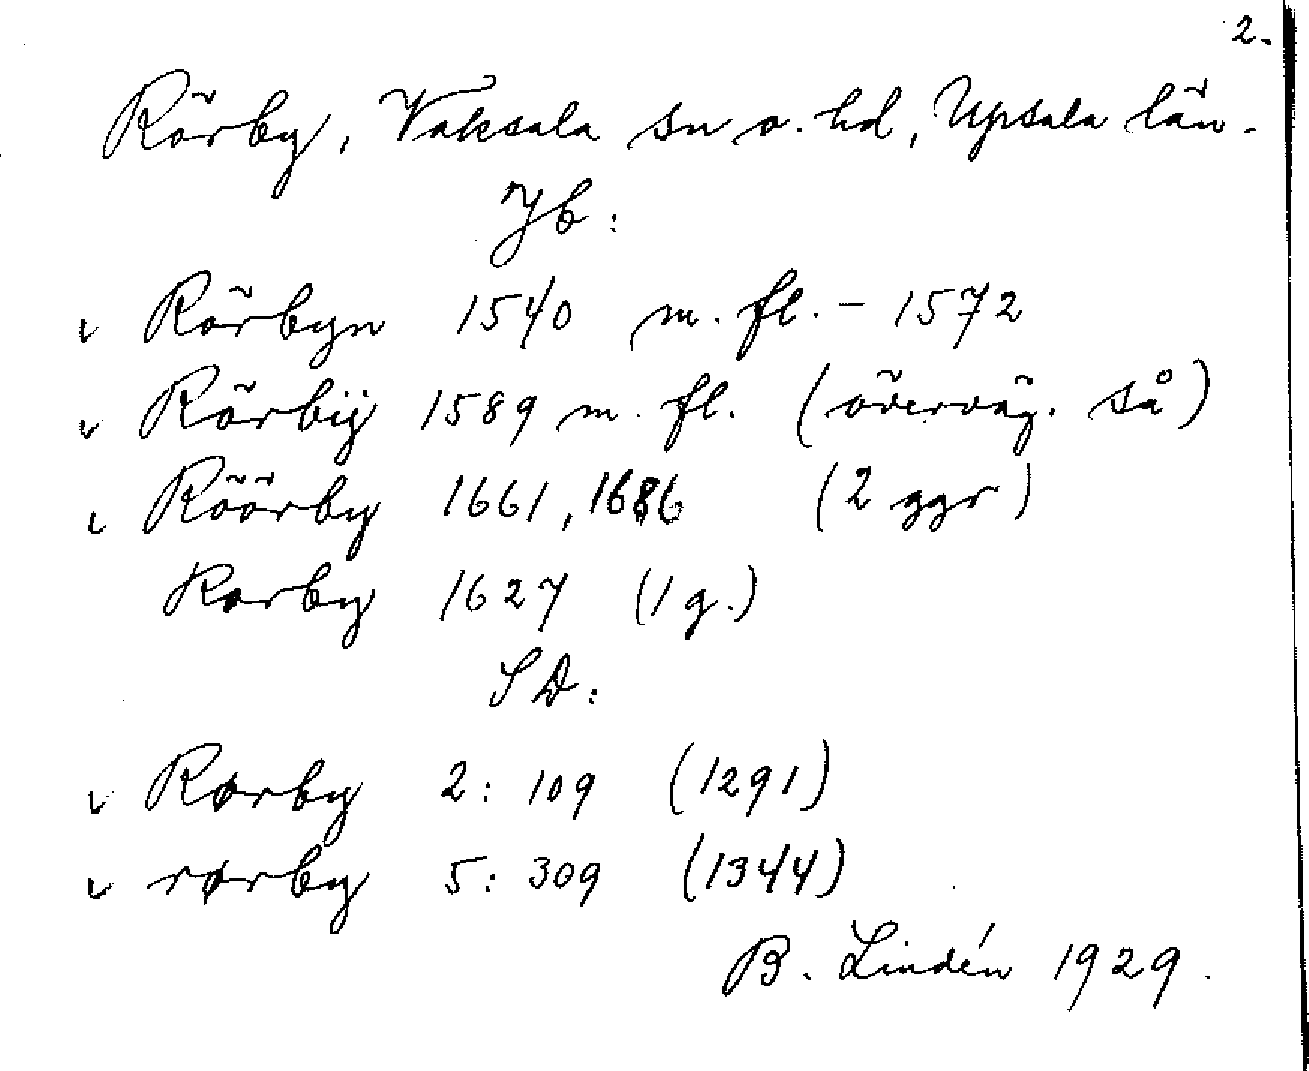 2.
Rörby, Vaksala sn o. hd, Upsala län.
Jb:
Rörbyn 1540 m. fl. – 1572
Rörbÿ 1589 m. fl. (överväg. så)
Röörby 1661, 1686 (2 ggr)
Rorby 1627 (1 g.)
SD:
Rørby 2: 109 (1291)
rørby 5: 309 (1344)
B. Lindén 1929.